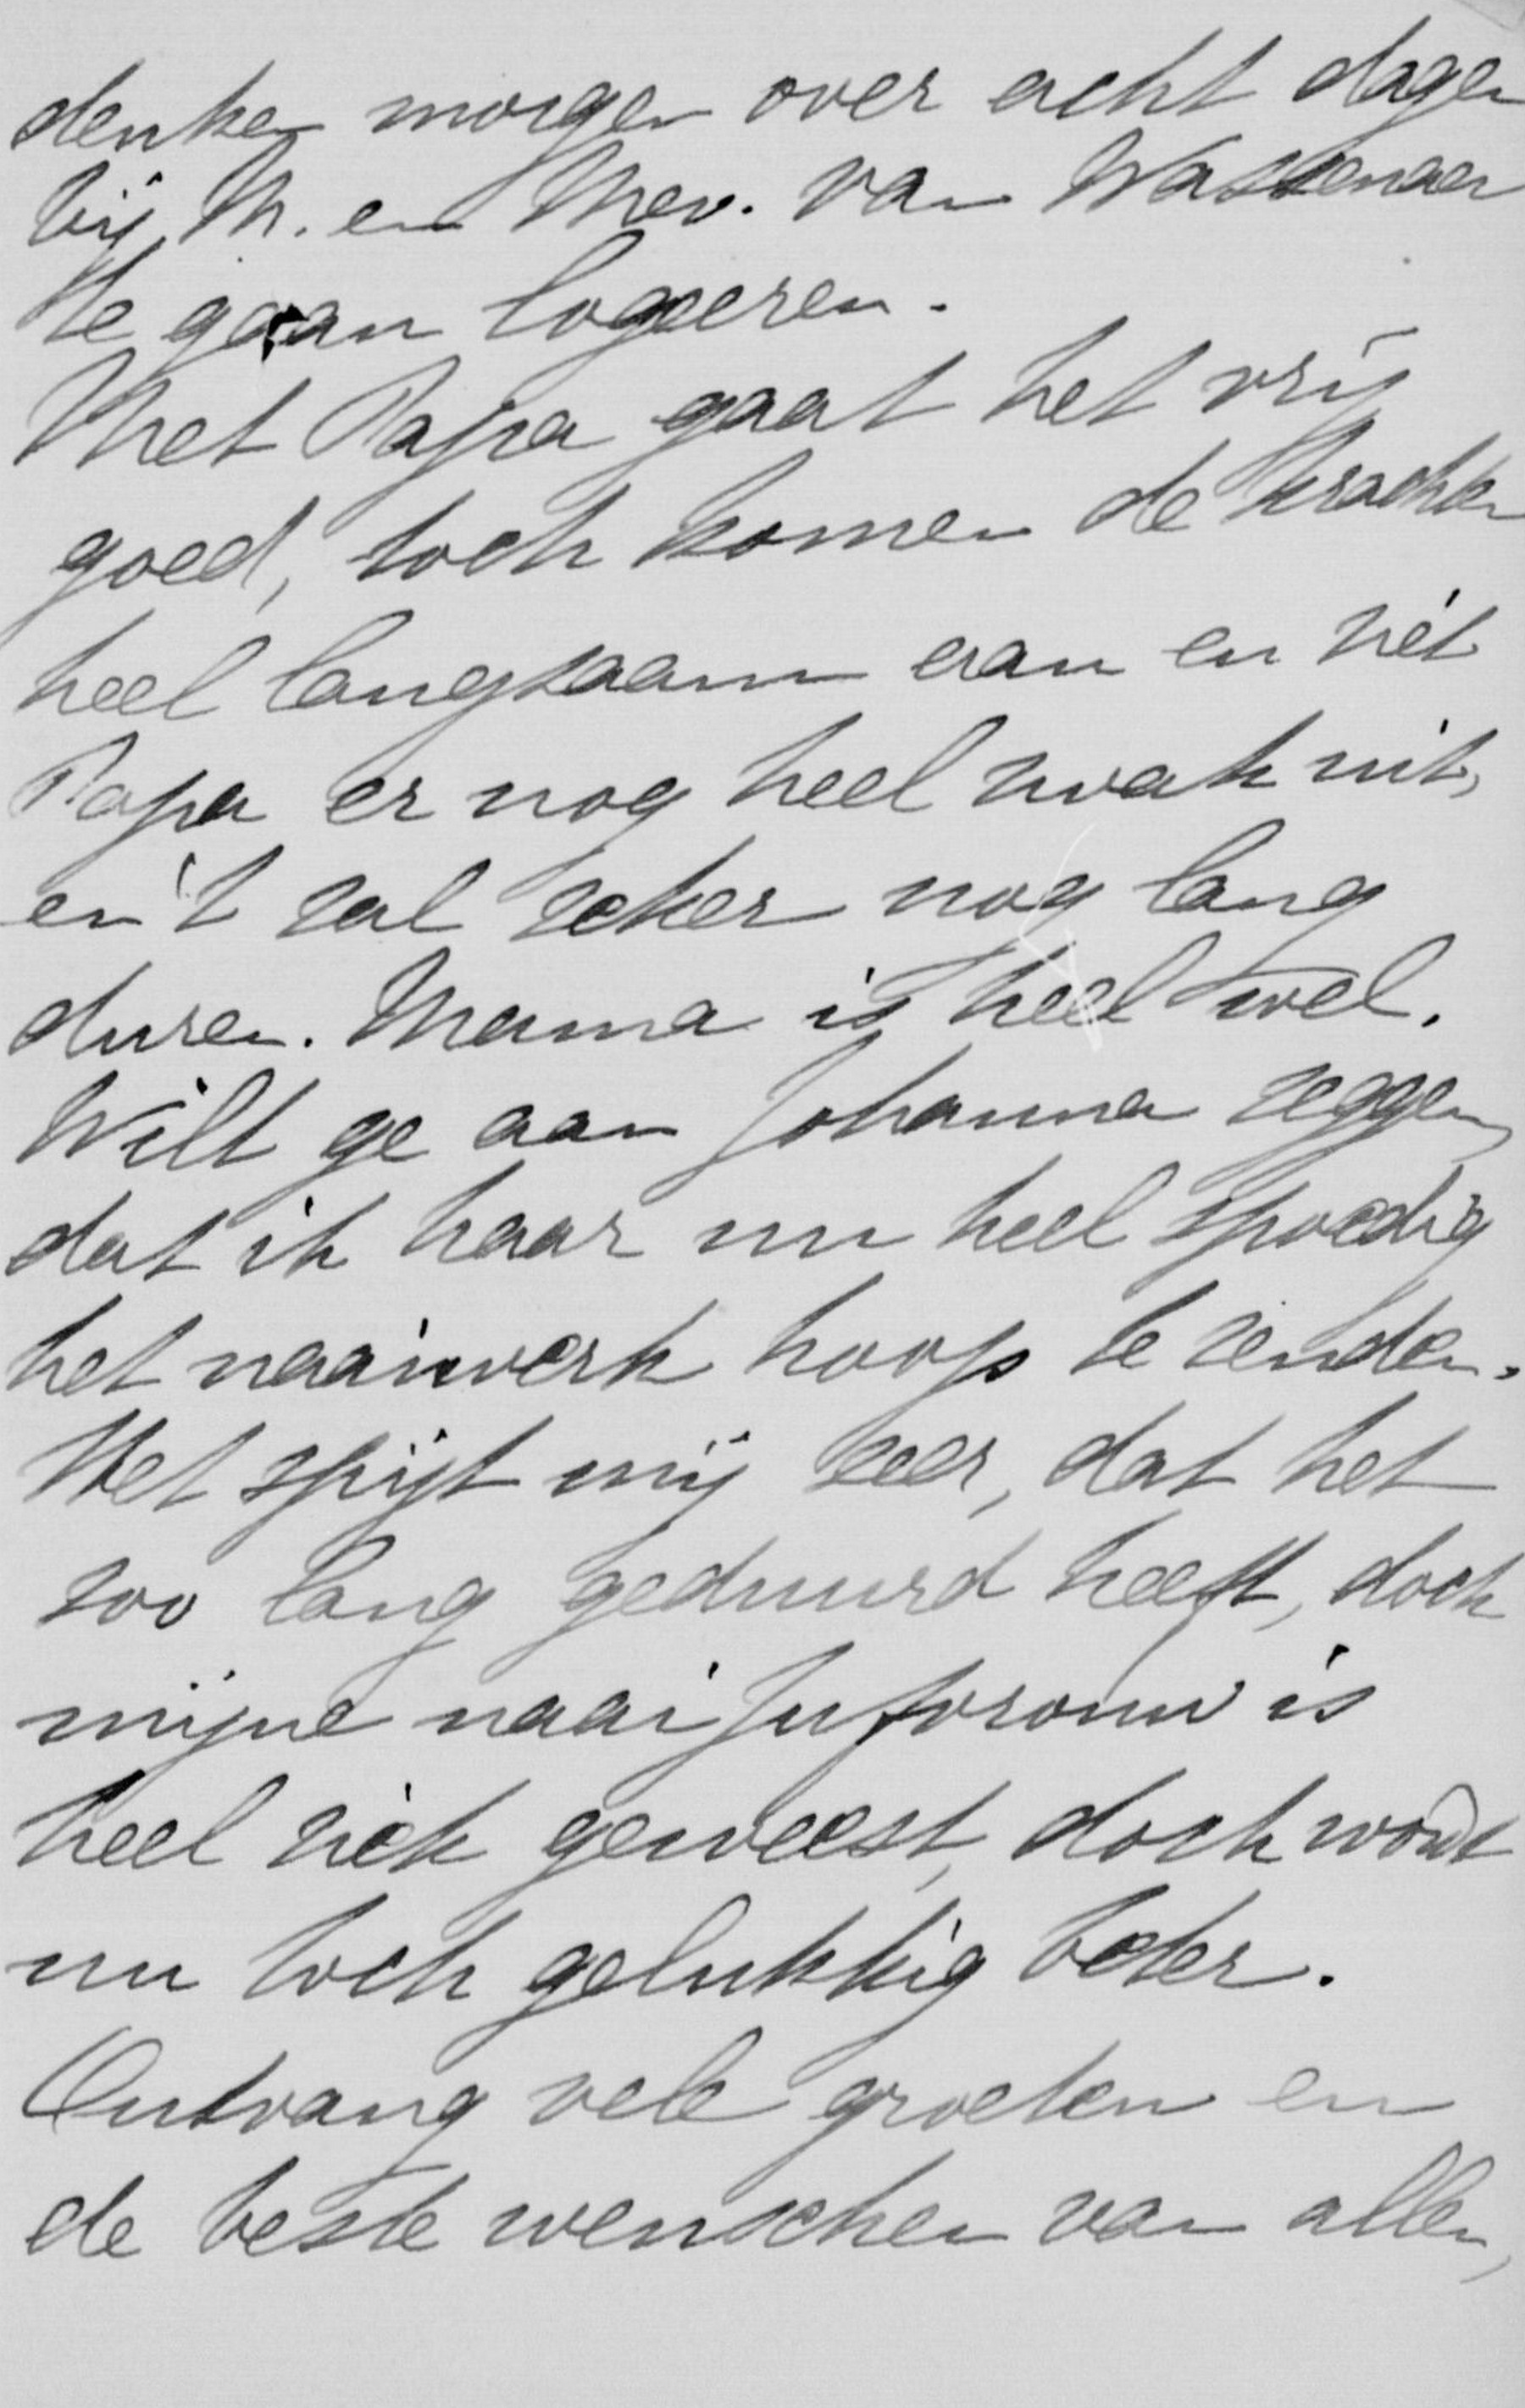 denken morgen over acht dagen
bij M. en Mev. van Wassenaer
te gaan logeeren.
Met Papa gaat het vrij
goed, toch komen de krachten
heel langzaam aan en ziet
Papa er nog heel zwak uit,
en 't zal zeker nog lang
duren. Mama is heel wel.
Wilt ge aan Johanna zeggen,
dat ik haar nu heel spoedig
het naaiwerk hoop te zenden.
Het spijt mij zeer, dat het
zoo lang geduurd heeft, doch
mijne naai Jufvrouw is
heel ziek geweest, doch wordt
nu toch gelukkig beter.
Ontvang vele groeten en
de beste wenschen van allen,